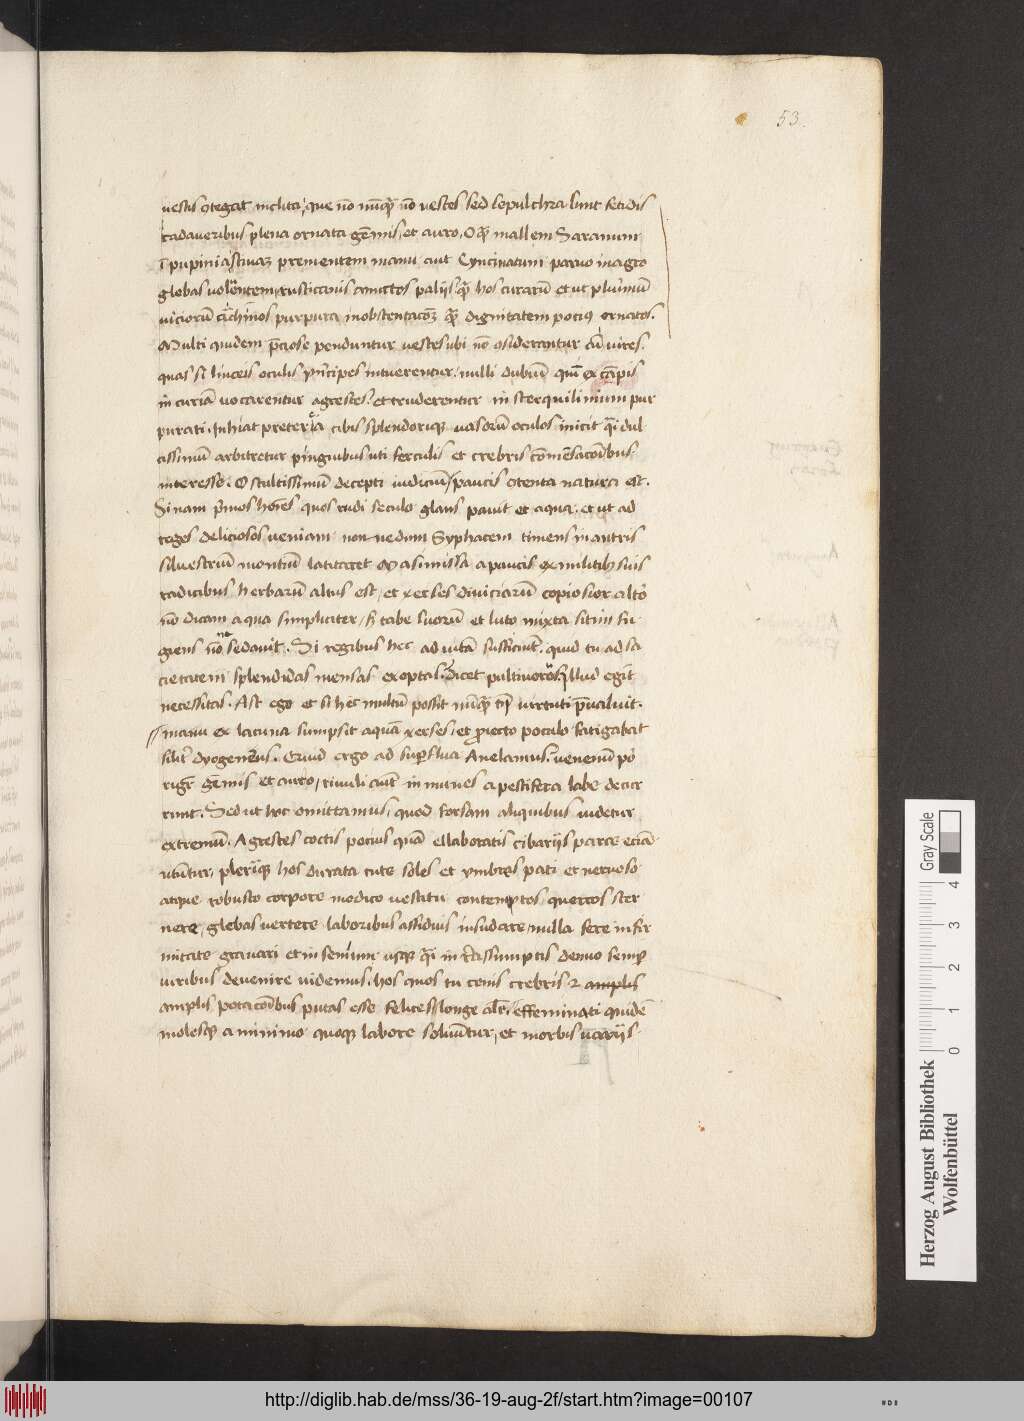 53.
vestis ɔtegat inclita, que nō nūqȝ nō vestes sed sepulchra sunt fetidis
cadaveribus plena ornata gēmis et auro. O qȝ mallem Saranum
prementem manu aut Cyncinatum parvo in agro
glebas volventem, rusticanis amictos palijs qȝ hos curarū et ut plurimū
viciorū purpura qȝ dignitatem pocius ornatos.
Multi quidem p̄ciose penduntur vestes ubi nō ɔsiderantur cū vires.
quas si linceis oculis p̄ncipes intuerentur, nulli dubiū quī ex cāpis
in curiā vocarentur agrestes et truderentur in sterquilinium pur
purati. Inhiat preterea cibis splendorique vasorū oculos inicit qͣi dul
cissimū arbitretur pinguibus uti ferculis et crebris cōmesacōibus
interesse. O stultissimū decepti iudiciū, paucis ɔtenta natura est.
Si nam p̄mos hoīes quos rudi seculo glans pavit et aqua, et ut ad
reges deliciosos veniam non nedum Syphacem timens in antris
silvestriū montiū latitaret Masimissa a paucis ex militibȝ suis
radicibus herbarū altus est, et xerses diviciarū copiosior alto
nō dicam aqua simpliciter, sȝ tabe luorū et luto mixta sitim fu
giens nō sedavit. Si regibus hec ad vitā sufficiūt, quid tu ad sa
cietatem splendidas mensas exoptas. Dicet illud egit
necessitas. Ast ego et si hec multū possit nūqȝ tn̄ virtuti p̄valuit.
manu ex lacuna sumpsit aquā xerses, et proiecto poculo fatigabat
silr̄ dyogenes. Quid ergo ad superflua Anelamus. venenū po
rigr̄ gēmis et auro, rivuli aūt in nitues a pestifera labe decur
runt. Sed ut hec omittamus, quod forsam aliquibus videtur
extremū. Agrestes coctis pocius quā ellaboratis cibarijs parce eciā
utūtur, plerūqȝ hos durata cute soles et ymbres pati et nervoso
atque robusto corpore modico vestitu contemptos quercos ster
nere, glebas vertere laboribus assiduis insudare, nulla fere infir
mitate gravari et in senium usqȝ qͣi in rēassumptis denuo semp
viribus devenire videmus. hos quos tu cenis crebris & amplis
amplis potacōibus putas esse felices longe alr̄, effeminati quidē
molesqȝ a minimo quoqȝ labore solvūtur, et morbis varijs
Herzog August Bibliothek
Wolfenbüttel
0 1 2 3 4
Gray Scale
http://diglib.hab.de/mss/36-19-aug-2f/start.htm?image=00107